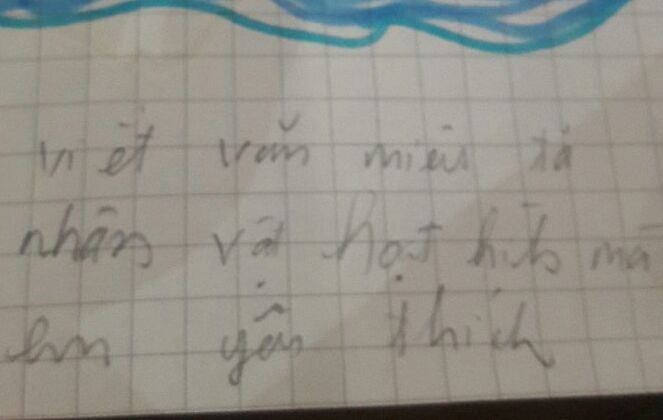 viết văn miêu tả
nhân vật hoạt hìh mà
em yêu thích